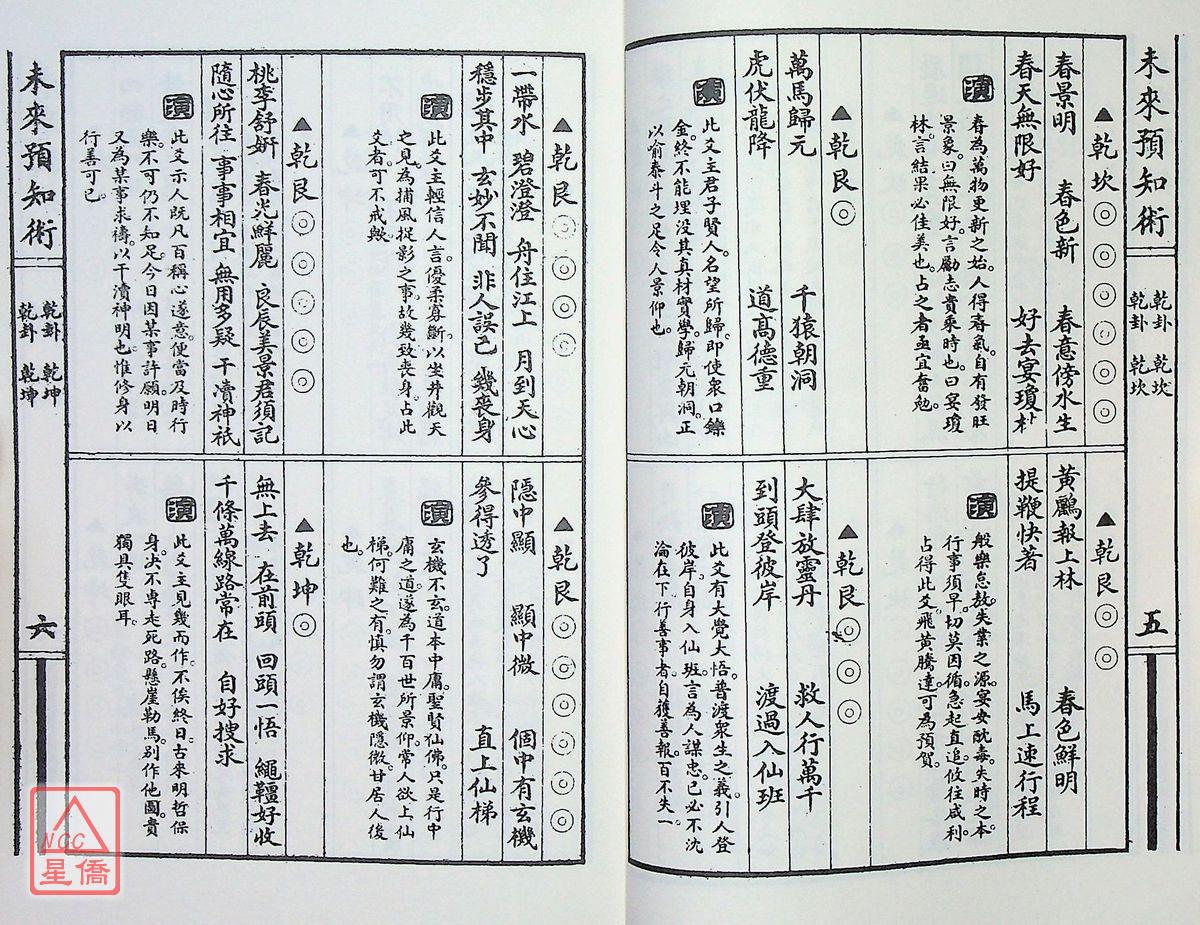 未來預知術
乾卦 乾坎
乾卦 乾坎
五
▲乾坎◎◎◎◎◎◎
春景明 春色新 春意傍水生
春天無限好 好去宴瓊林
演
春為萬物更新之始。人得春氣。自有發旺
景象。曰無限好。言勵志貴乘時也。曰宴瓊
林。言結果必佳美也。占之者亟宜奮勉。
▲乾艮◎
萬馬歸元 千猿朝洞
虎伏龍降 道高德重
演
此爻主君子賢人。名望所歸。即使眾口鑠
金。終不能埋沒其真材實學。歸元朝洞。正
以喻泰斗之足令人景仰也。
▲乾艮◎◎
黃鸝報上林 春色鮮明
提鞭快著 馬上速行程
演
般樂怠敖。失業之源。宴安酖毒。失時之本。
行事須早。切莫因循。急起直追。攸往咸利。
占得此爻。飛黃騰達。可為預賀。
▲乾艮◎◎◎
大肆放靈丹 救人行萬千
到頭登彼岸 渡過入仙班
演
此爻有大覺大悟。普渡眾生之義。引人登
彼岸。自身入仙班。言為人謀忠。己必不沈
淪在下。行善事者。自獲善報。百不失一。
未來預知術
乾卦 乾坤
乾卦 乾坤
六
▲乾艮◎◎◎◎
一帶水 碧澄澄 舟住江上 月到天心
穩步其中 玄妙不聞 非人誤己 幾喪身
演
此爻主輕信人言。優柔寡斷。以坐井觀天
之見。為捕風捉影之事。故幾致喪身。占此
爻者。可不戒歟。
▲乾艮◎◎◎◎◎
桃李舒妍 春光鮮麗 良辰美景君須記
隨心所往 事事相宜 無用多疑 干瀆神祇
演
此爻示人既凡百稱心遂意。便當及時行
樂。不可仍不知足。今日因某事許願。明日
又為某事求禱。以干瀆神明也。惟修身以
行善可已。
▲乾艮◎◎◎◎◎◎
隱中顯 顯中微 個中有玄機
參得透了 直上仙梯
演
玄機不玄。道本中庸。聖賢仙佛。只是行中
庸之道。遂為千百世所景仰。常人欲上仙
梯。何難之有。慎勿謂玄機隱微。甘居人後
也。
▲乾坤◎
無上去 在前頭 回頭一悟 繩韁好收
千條萬線路常在 自好搜求
演
此爻主見幾而作。不俟終日。古來明哲保
身。決不專走死路。懸崖勒馬。別作他圖。貴
獨具隻眼耳。
NCC
星僑